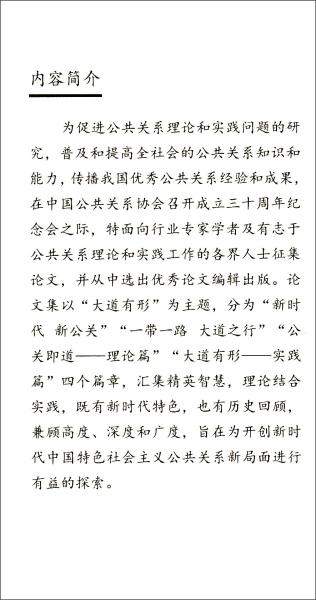 内容简介
为促进公共关系理论和实践问题的研
究，普及和提高全社会的公共关系知识和
能力，传播我国优秀公共关系经验和成果，
在中国公共关系协会召开成立三十周年纪
念会之际，特面向行业专家学者及有志于
公共关系理论和实践工作的各界人士征集
论文，并从中选出优秀论文编辑出版。论
文集以“大道有形”为主题，分为“新时
代 新公关”“一带一路 大道之行”“公
关即道——理论篇”“大道有形——实践
篇”四个篇章，汇集精英智慧，理论结合
实践，既有新时代特色，也有历史回顾，
兼顾高度、深度和广度，旨在为开创新时
代中国特色社会主义公共关系新局面进行
有益的探索。